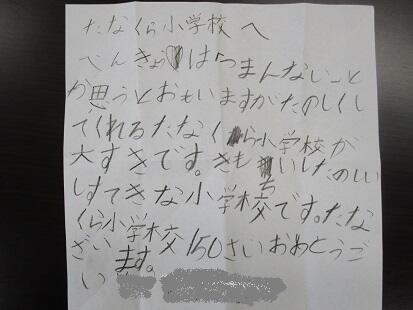 たなくら小学校へ
べんきょうはつまんないこと
が思うとおもいますがたのしくし
てくれるたなくら小学校が
大すきです。きもちいしたのしい
しすてきな小学校です。たな
くら小学校150さいおめとうご
ざいます。